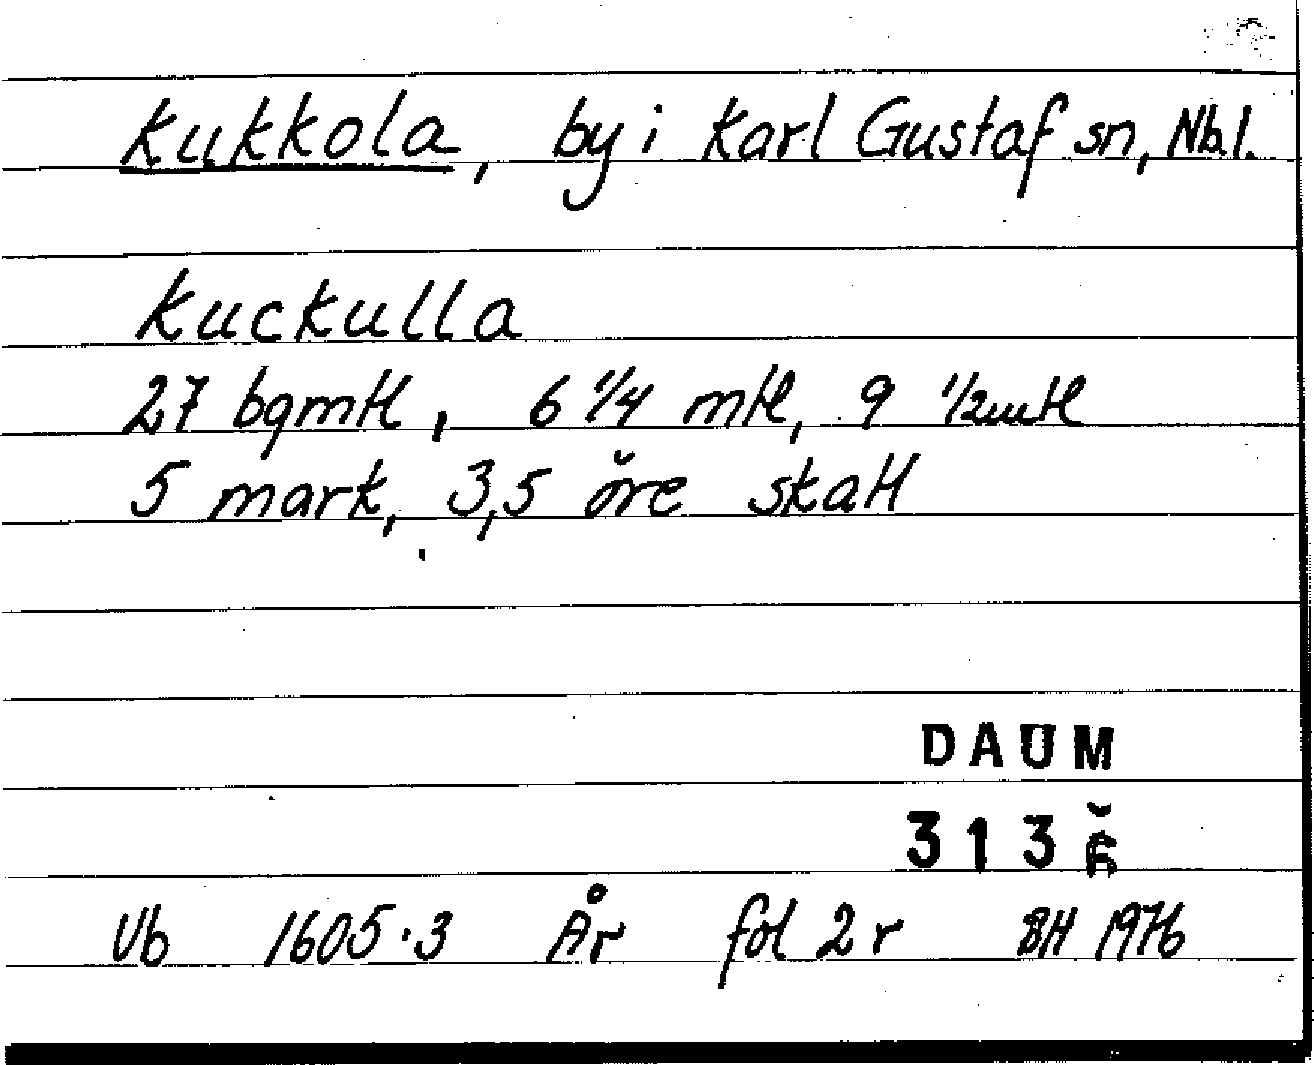 Kukkola, by i Karl Gustaf sn, Nb.l.
Kuckulla
27 bgmtl, 6 1/4 mtl, 9 1/2mtl
5 mark, 3,5 öre skatt
DAUM
313
Vb 1605:3 År fol 2r BH 1976